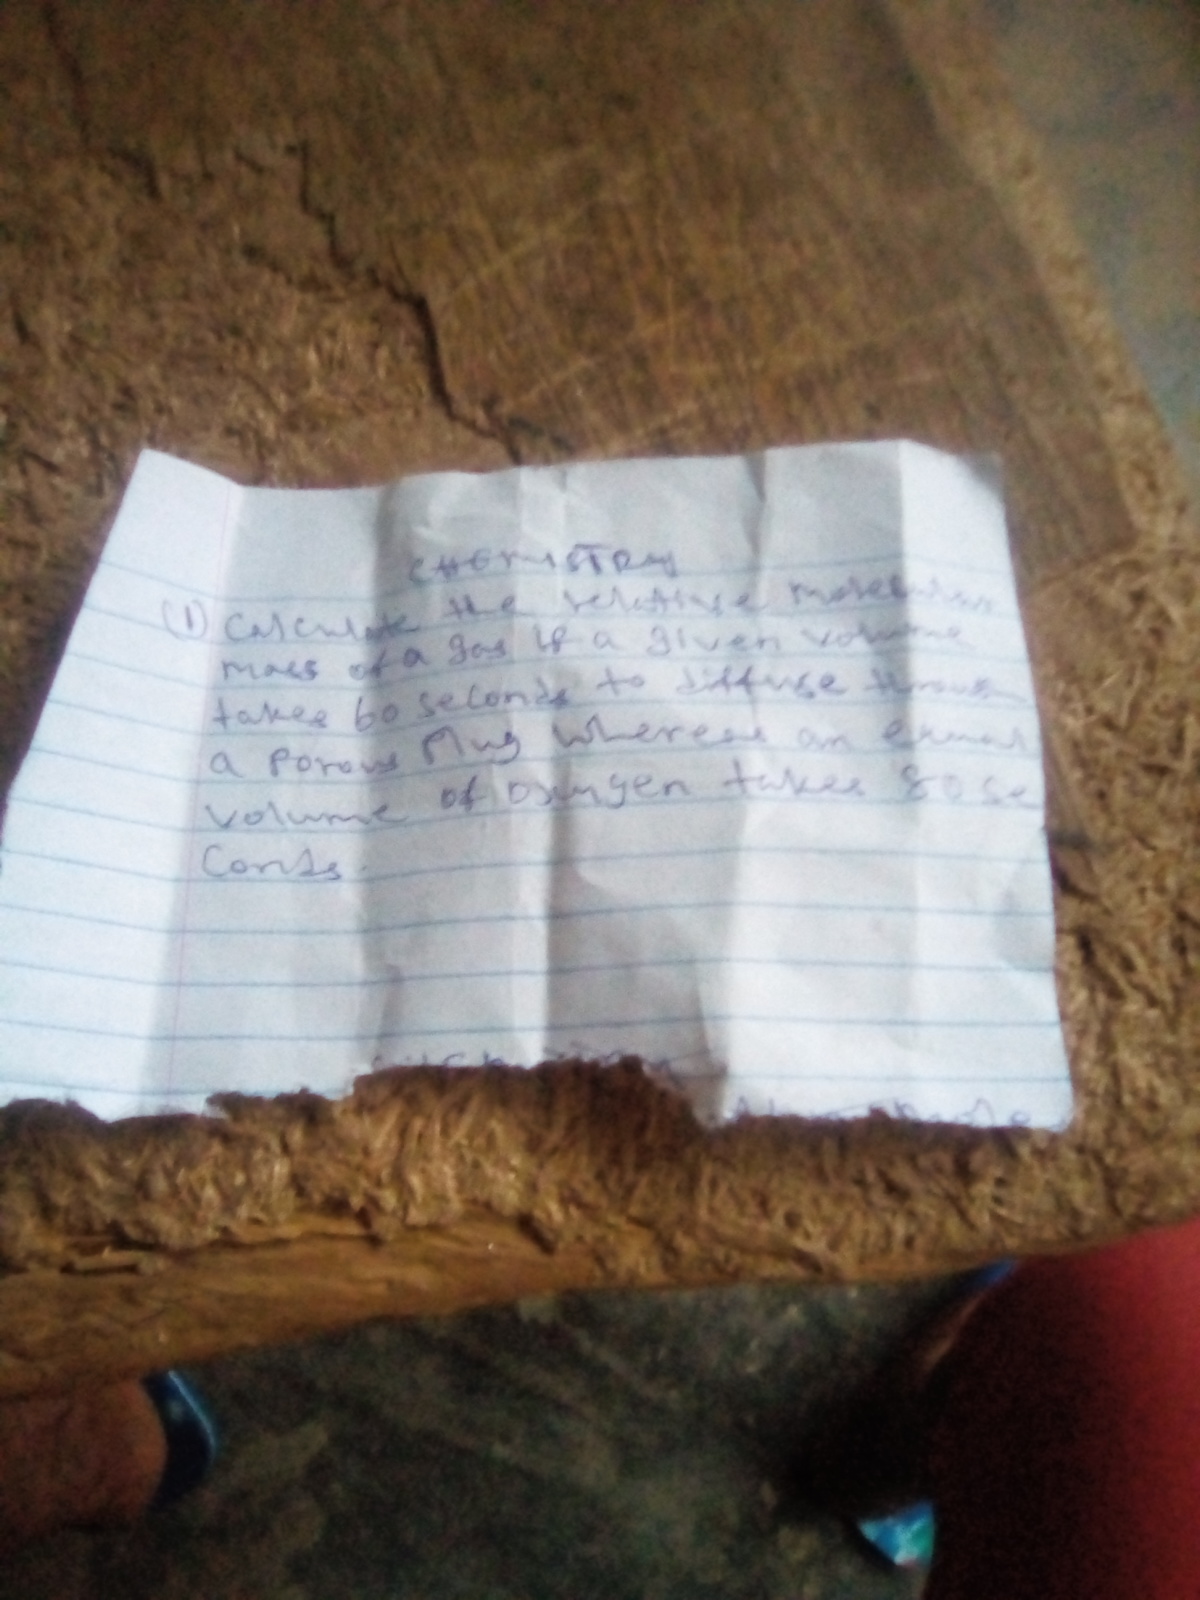 CHEMISTRY
(1) Calculate the relative molecular
mass of a gas if a given volume
takes 60 seconds to diffuse through
a porous plug whereas an equal
volume of oxygen takes 80 se
conds.